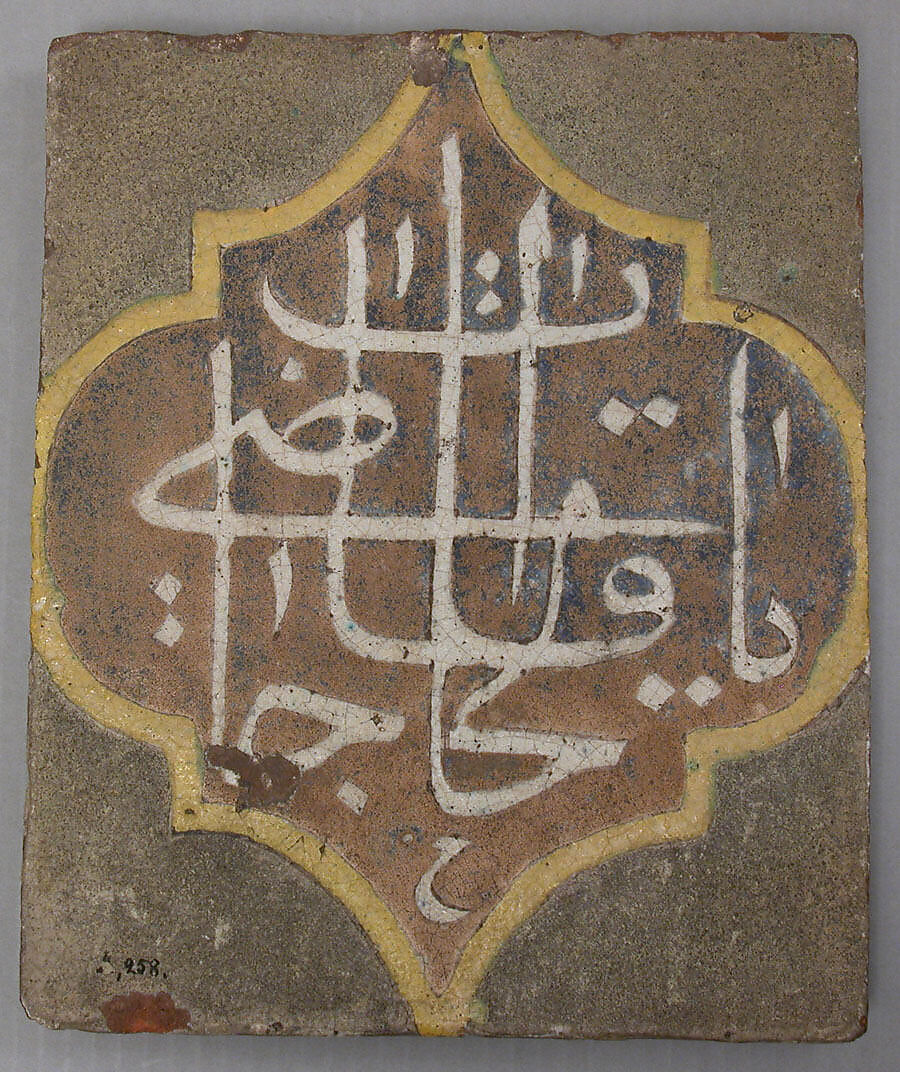 يا قاضي الحاجات
258.